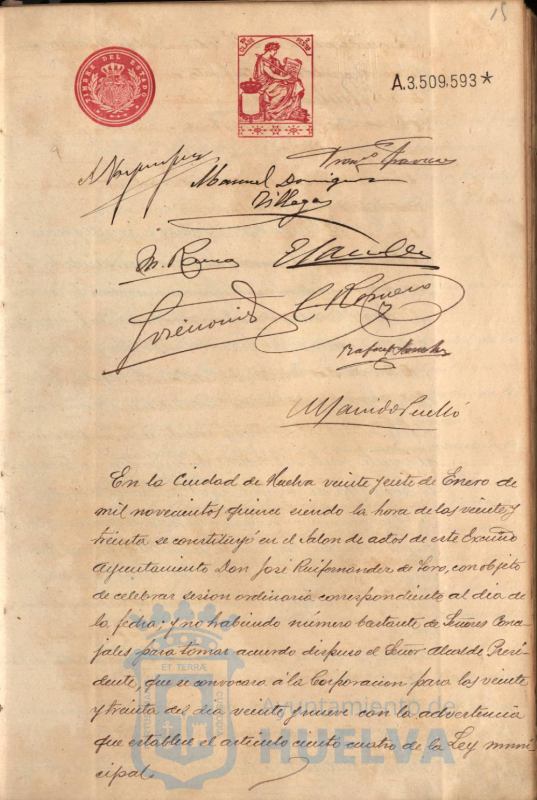 15
TIMBRE DEL ESTADO
A.3.509.593*
Manuel Dominguez
Villegas
C. Romero
Rafael Sanchez
En la Ciudad de Huelva veinte y siete de Enero de
mil novecientos quince siendo la hora de las veinte y
treinta se constituyó en el Salon de actos de este Excmo
Ayuntamiento Don José Ruifernandez de Toro, con objeto
de celebrar sesion ordinaria correspondiente al dia de
la fecha; y no habiendo número bastante de Señores Conce-
jales para tomar acuerdo dispuso el Señor Alcalde Presi-
dente, que se convocara á la Corporacion para las veinte
y treinta del dia veinte y nueve con la advertencia
que establece el artículo ciento cuatro de la Ley muni-
cipal.
ET TERRÆ
Ayuntamiento de
HUELVA